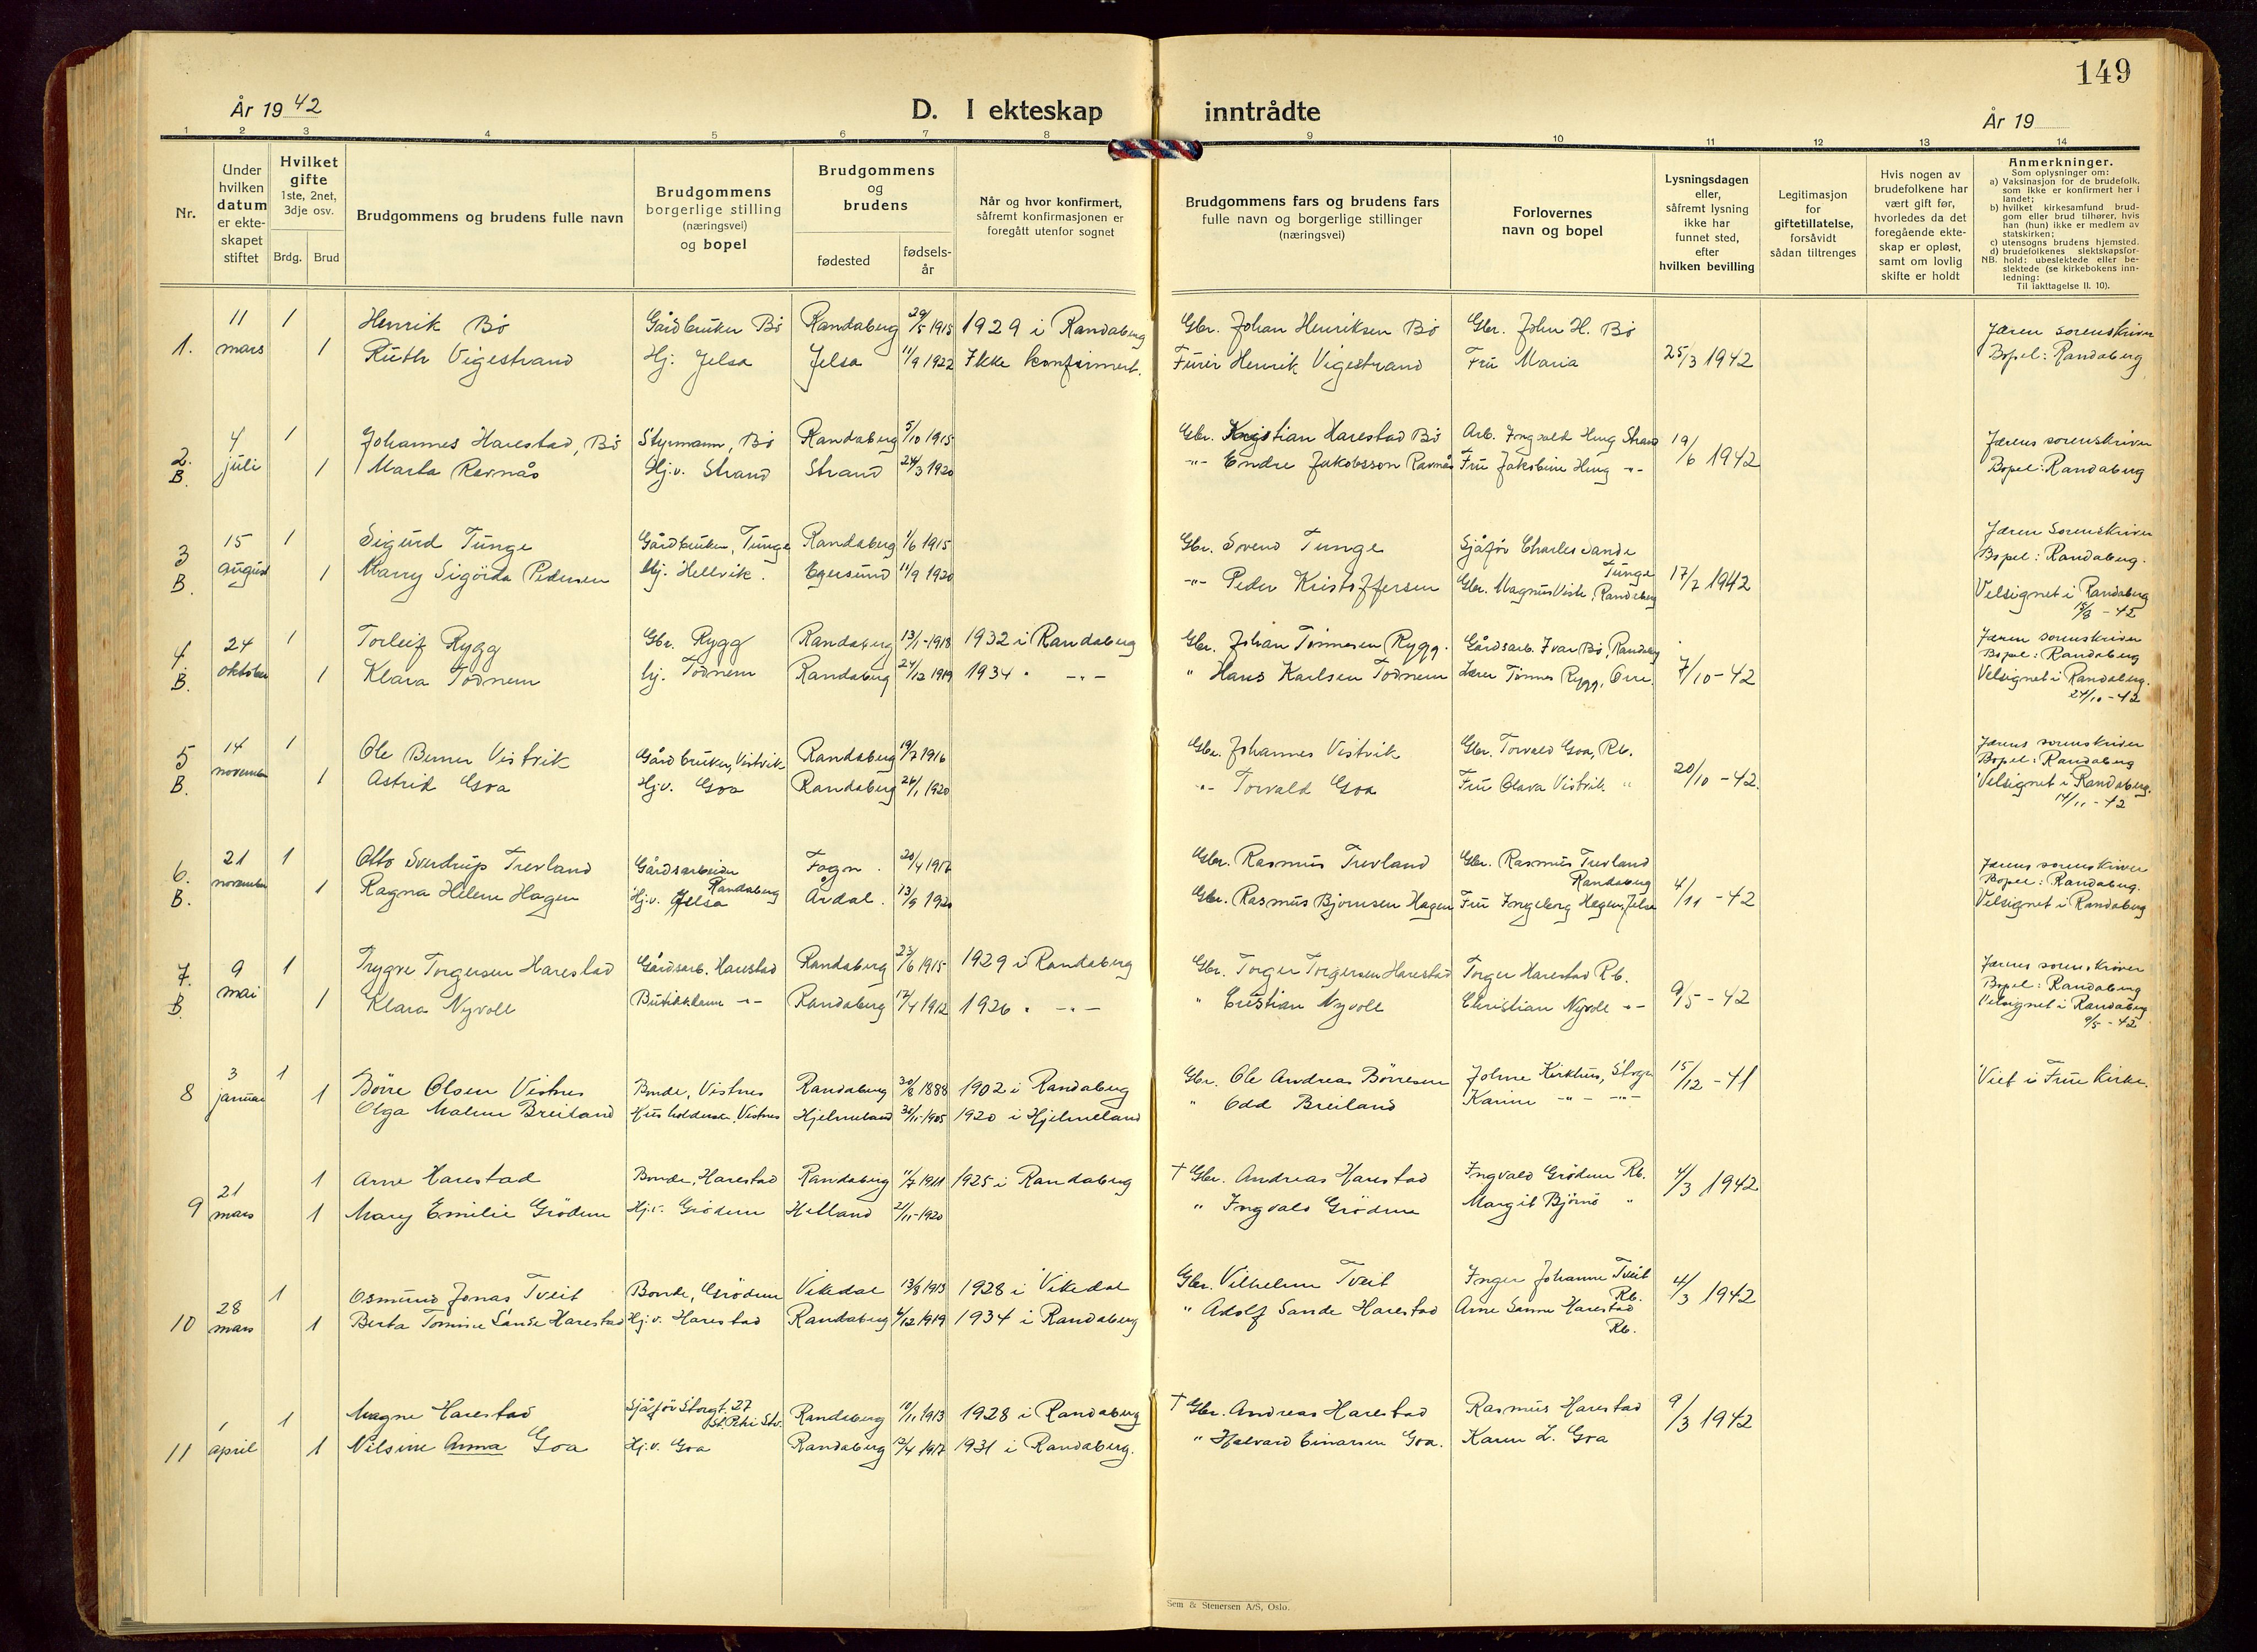 149
År 19 42
D. I ekteskap inntrådte
År 19
1 2 3 4 5 6 7 8 9 10 11 12 13 14
Nr.
Under hvilken datum er ekte-skapet stiftet
Hvilket gifte
1ste, 2net, 3dje osv.
Brdg. Brud
Brudgommens og brudens fulle navn
Brudgommens borgerlige stilling (næringsvei) og bopel
Brudgommens og brudens
fødested
fødsels-år
Når og hvor konfirmert, såfremt konfirmasjonen er foregått utenfor sognet
Brudgommens fars og brudens fars fulle navn og borgerlige stillinger (næringsvei)
Forlovernes navn og bopel
Lysningsdagen eller, såfremt lysning ikke har funnet sted, efter hvilken bevilling
Legitimasjon for giftetillatelse, forsåvidt sådan tiltrenges
Hvis nogen av brudefolkene har vært gift før, hvorledes da det foregående ekte-skap er opløst, samt om lovlig skifte er holdt
Anmerkninger.
Som oplysninger om:
a) Vaksinasjon for de brudefolk, som ikke er konfirmert her i landet;
b) hvilket kirkesamfund brud-gom eller brud tilhører, hvis han (hun) ikke er medlem av statskirken;
c) utensogns brudens hjemsted.
d) brudefolkenes slektskapsfor-hold: ubeslektede eller be-slektede (se kirkebokens inn-ledning:
NB.
Til iakttagelse II. 10).
1. 11 mars 1 Henrik Bö Gårdbruker Bö Randaberg 29/5 1915 1929 i Randaberg Gbr. Johan Henriksen Bö Gbr. John H. Bö 25/3 1942 Jæren sorenskriver
1 Ruth Vigestrand Hj. Jelsa Jelsa 11/9 1922 Ikke konfirmert. Furir Henrik Vigestrand Fru Maria Bopel: Randaberg
2. B. 4 juli 1 Johannes Harestad, Bö Styrmann, Bö Randaberg 5/10 1915 Gbr. Kristian Harestad Bö Arb. Ingvald Haug Strand 19/6 1942 Jærens sorenskriver
1 Marta Ravnås Hj.v. Strand Strand 24/3 1920 -"- Endre Jakobsson Ravnås Fru Jakobine Haug -"- Bopel: Randaberg
3 B. 15 august 1 Sigurd Tunge Gårdbruker, Tunge Randaberg 1/6 1915 Gbr. Svend Tunge Sjåför Charles Sande Tunge 17/7 1942 Jæren Sorenskriver
Bopel: Randaberg.
1 Marry Sigörda Pedersen Hj. Hellvik. Egersund 11/9 1920 -"- Peder Kristoffersen Gbr. Magnus Viste, Randaberg Velsignet i Randaberg
15/8 - 42
4 B. 24 oktober 1 Torleif Rygg Gbr. Rygg Randaberg 13/1-1918 1932 i Randaberg Gbr. Johan Tönnesen Rygg. Gårdsarb. Ivar Bö, Randabg 7/10 - 42 Jæren sorenskriver
Bopel: Randaberg
1 Klara Todnem hj. Todnem Randaberg 24/12 1919 1934 " -"- " Hans Karlsen Todnem Lærer Tönnes Rygg, Orre. Velsignet i Randaberg.
24/10 - 42
5 B. 14 november 1 Ole Berner Vistvik Gårdbruker, Vistvik Randaberg 19/7 1916 Gbr. Johannes Vistvik Gbr. Torvald Goa, Rb. 20/10 - 42. Jærens sorenskriver
Bopel: Randaberg
1 Astrid Goa Hj.v. Goa Randaberg 26/1 1920 -"- Torvald Goa Fru Olava Vistvik " Velsignet i Randaberg.
14/11 - 42
6. B. 21 november 1 Otto Sverdrup Trevland Gårdsarbeider Randaberg Fogn. 20/4 1917 Gbr. Rasmus Trevland Gbr. Rasmus Trevland Randaberg 4/11 - 42 Jærens sorenskriver
Bopel: Randaberg.
1 Ragna Helene Hagen Hj.v. Jelsa Årdal. 13/9 1920 Gbr. Rasmus Bjornsen Hagen Fru Ingeborg Hagen, Jelsa Velsignet i Randaberg
7. B. 9 mai 1 Trygve Torgersen Harestad Gårdsarb. Harestad Randaberg 23/6 1915 1929 i Randaberg Gbr. Torger Torgersen Harestad Torger Harestad Rb. 9/5 - 42 Jærens sorenskriver
Bopel: Randaberg
1 Klara Nyvoll Butikkdame -"- Randaberg 17/4 1912 1926 " -"- " Cristian Nyvoll Christian Nyvoll -"- Velsignet i Randaberg
9/5 - 42
8 3 januar 1 Börre Olsen Vistnes Bonde, Vistnes Randaberg 30/8 1888 1902 i Randaberg Gbr. Ole Andreas Börresen Johne Kirkhus, 15/12 - 41 Viet i Frue Kirke.
1 Olga Malene Breiland Husholderske, Vistnes Hjelmeland 1905 1920 i Hjelmeland " Odd Breiland Karine -"- -"-
9 21 mars 1 Arne Harestad Bonde, Harestad Randaberg 11/7 1911 1925 i Randaberg † Gbr. Andreas Harestad Ingvald Grödem Rb. 4/3 1942
1 Mary Emilie Grödem Hj.v. Grödem Helland 21/11-1920 " Ingvald Grödem Margit Björnö "
10 28 mars 1 Osmund Jonas Tveit Bonde, Grödem Vikedal 13/8 1913 1928 i Vikedal Gbr. Vilhelm Tveit Inger Johanne Tveit Rb. 4/3 1942
1 Berta Tomine Sande Harestad Hj.v. Harestad Randaberg 6/12 1919 1934 i Randaberg " Adolf Sande Harestad Arne Sande Harestad Rb.
11 1 april 1 Magne Harestad Sjåför Storgt. 27 St. Petri Stv. Randaberg 10/11 1913 1928 i Randaberg † Gbr. Andreas Harestad Rasmus Harestad 9/3 1942
1 Nilsine Anna Goa Hj.v. Goa Randaberg 12/4 1917 1931 i Randaberg. " Halvard Einarsen Goa. Karen L. Goa
Sem & Stenersen A/S, Oslo.